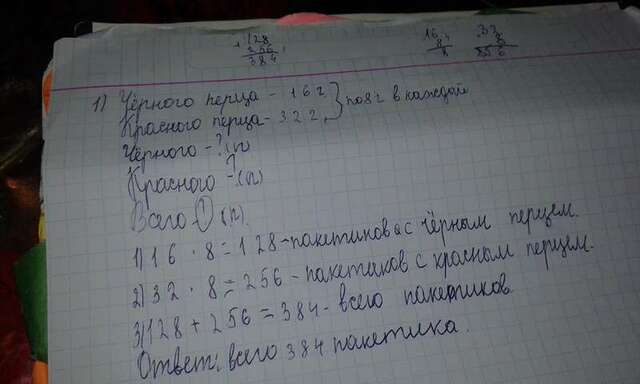 +128
256
384
16
8
32
8
256
1) Чёрного перца - 16 г.
Красного перца - 32 г. } по 8 г в каждой
Чёрного - ? (п)
Красного - ? (п)
Всего ? (п).
1) 16 · 8 = 128 - пакетиков с чёрным перцем.
2) 32 · 8 = 256 - пакетиков с красным перцем.
3) 128 + 256 = 384 - всего пакетиков.
Ответ: всего 384 пакетика.